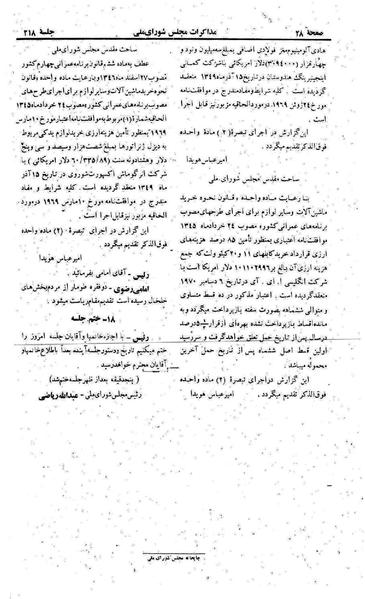 صفحهٔ ۲۸
مذاکرات مجلس شورای ملی
جلسهٔ ۲۱۸
هادی آلومینیوم مغز فولادی اضافی بمبلغ سه میلیون و نود و
چهار هزار (۳۰۹۴۰۰۰) دلار آمریکائی با شرکت کمانی
اینجینیرینگ هندوستان در تاریخ ۱۵ آذر ماه ۱۳۴۹
منعقد گردیده است. کلیه شرایط و مفاد مندرج در موافقتنامه
مورخ ۲۴ ژون ۱۹۶۹ در مورد الحاقیه مزبور نیز قابل اجرا
است.
این گزارش در اجرای تبصرهٔ (۲) مادهٔ واحده
فوق‌الذکر تقدیم میگردد.
امیرعباس هویدا
ساحت مقدس مجلس شورای ملی.
با رعایت ماده واحده قانون نحوه خرید
ماشین‌آلات و سایر لوازم برای اجرای طرحهای مصوب
برنامه‌های عمرانی کشور، مصوب ۲۴ خرداد ماه ۱۳۴۵
موافقتنامه اعتباری بمنظور تأمین ۸۵ درصد هزینه‌های
قرارداد خرید کابلهای ۱۱ و ۲۰ کیلو ولت که جمع
هزینه ارزی آن بالغ بر ۱۰۱۱۰۲۹۹۶ دلار آمریکا است با
شرکت انگلیسی آی. آی. سی در تاریخ ۶ دسامبر ۱۹۷۰
منعقد گردیده است. اعتبار مذکور در ده قسط متساوی
و متوالی ششماهه بصورت سفته پرداخت میگردد و به
مانده اقساط بازپرداخت نشده بهره‌ای از قرار ۵٫۵ درصد
در سال پس از تاریخ حمل تعلق خواهد گرفت و سررسید
اولین قسط اصل ششماه پس از تاریخ حمل آخرین
محموله میباشد.
این گزارش در اجرای تبصرهٔ (۲) ماده واحده
فوق‌الذکر تقدیم میگردد.
امیرعباس هویدا
ساحت مقدس مجلس شورای ملی
عطف به ماده شش قانون برنامه عمرانی چهارم کشور
مصوب ۲۷ اسفند ماه ۱۳۴۶ و با رعایت ماده واحده قانون
نحوه خرید ماشین‌آلات و سایر لوازم برای اجرای طرحهای
مصوب برنامه‌های عمرانی کشور مصوب ۲۴ خرداد ماه ۱۳۴۵
الحاقیه شماره (۱) مربوط به موافقتنامه اعتباری مورخ ۱۰ مارس
۱۹۶۹ بمنظور تأمین هزینه ارزی خرید لوازم یدکی مربوط
به دیزل ژنراتورها بمبلغ شصت هزار و سیصد و سی و پنج
دلار و هشتاد و نه سنت (۶۰/۳۳۵/۸۹ دلار آمریکائی) با
شرکت انرگوماش اکسپورت شوروی در تاریخ ۱۵ آذر
ماه ۱۳۴۹ منعقد گردیده است. کلیه شرایط و مفاد
مندرج در موافقتنامه مورخ ۱۰ مارس ۱۹۶۹ در مورد
الحاقیه مزبور نیز قابل اجرا است.
این گزارش در اجرای تبصرهٔ (۲) ماده واحده
فوق‌الذکر تقدیم میگردد.
امیرعباس هویدا
رئیس - آقای امامی بفرمائید.
امامی رضوی - دو فقره طومار از مردم بخش‌های
خلخال رسیده است تقدیم مقام ریاست میشود.
۱۸ - ختم جلسه
رئیس - با اجازه خانمها و آقایان جلسه امروز را
ختم میکنیم تاریخ و دستور جلسه آینده بعداً باطلاع خانمها و
آقایان محترم خواهد رسید.
(پنج دقیقه بعد از ظهر جلسه ختم شد)
رئیس مجلس شورای ملی - عبدالله ریاضی
چاپخانه مجلس شورای ملی